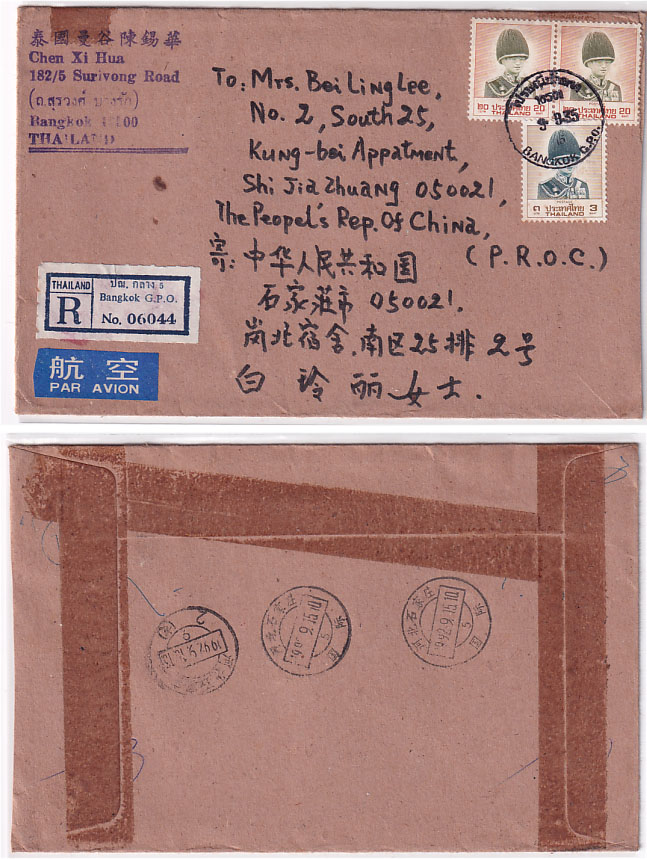 泰國曼谷陳錫華
Chen Xi Hua
182/5 Surivong Road
(ถ.สุรวงศ์ บางรัก)
Bangkok
THAILAND
To: Mrs. Bei Ling Lee,
No. 2, South 25,
Kung-bei Appatment,
Shi Jia Zhuang 050021,
The Peopel's Rep. Of China,
(P.R.O.C.)
寄: 中华人民共和国
石家莊市 050021.
岗北宿舍.南区25排2号
白玲丽女士.
๒๐ ประเทศไทย 20
THAILAND
๒๐ ประเทศไทย 20
THAILAND
BANGKOK G.P.O.
๓ ประเทศไทย 3
THAILAND
THAILAND
R
ปณ. กลาง 5
Bangkok G.P.O.
No. 06044
航空
PAR AVION
河北石家庄
5
河北石家庄
5